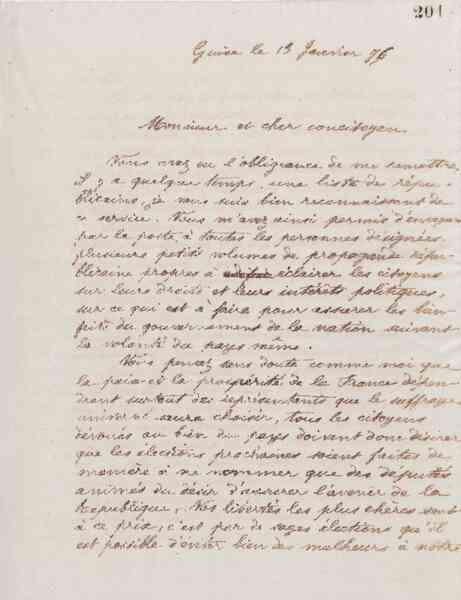 201
Guise le 13 Janvier 76
Monsieur et cher concitoyen,
Vous avez eu l'obligeance de me remettre,
il y a quelque temps, une liste de répu-
blicains, je vous suis bien reconnaissant de
ce service. Vous m'avez ainsi permis d'envoyer
par la poste, à toutes les personnes désignées,
plusieurs petits volumes de propagande répu-
blicaine propres à éclairer les citoyens
sur leurs droits et leurs intérêts politiques,
sur ce qui est à faire pour assurer les bien-
faits du gouvernement de la nation suivant
la volonté du pays même.
Vous pensez sans doute comme moi que
la paix et la prospérité de la France dépen-
dront surtout des représentants que le suffrage
universel saura choisir, tous les citoyens
dévoués au bien du pays doivent donc désirer
que les élections prochaines soient faites de
manière à ne nommer que des députés
animés du désir d'assurer l'avenir de la
République, Nos libertés les plus chères sont
à ce prix, c'est par de sages élections qu'il
est possible d'éviter bien des malheurs à notre